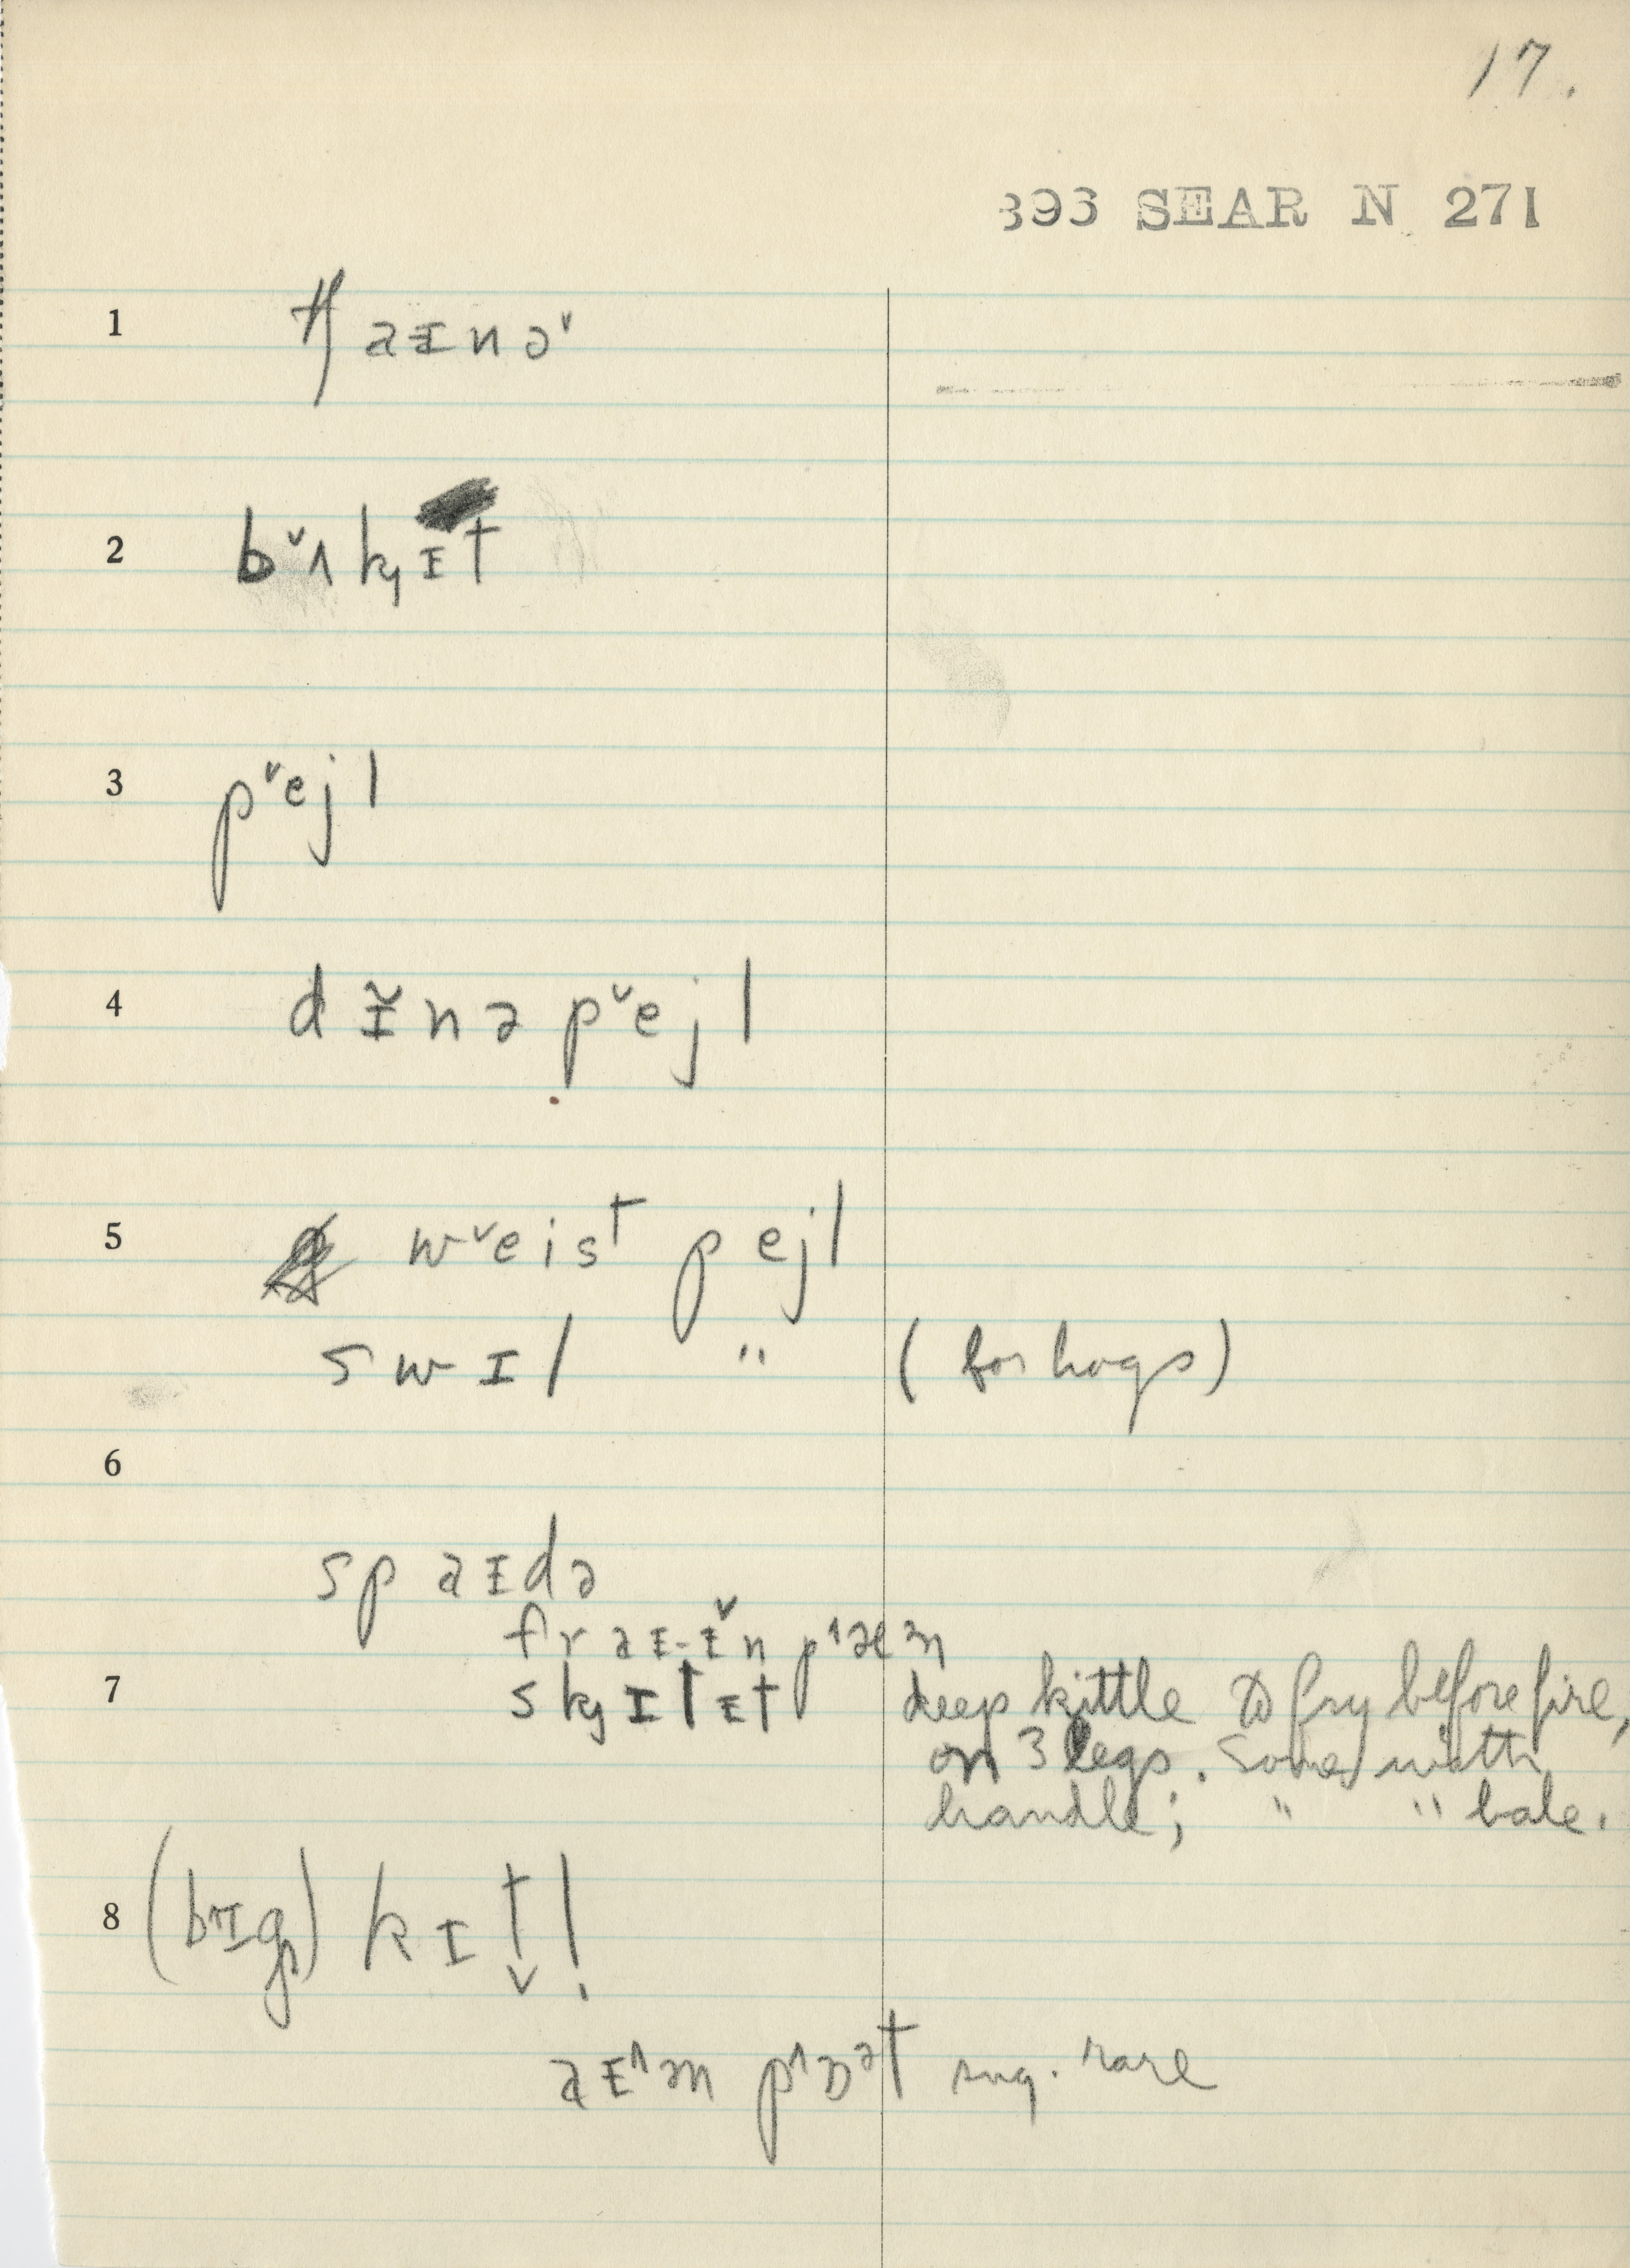 17.
393 SEAR N 271
1 tʃ aᵻnə˅
2 b˅ʌkᶨᵻt
3 p˅ejl
4 dᵻ̌nə p˅ejl
5 w˅eist pejl
swɪl " (for hogs)
6
spaᵻdə
fraᵻ-ᵻ̌n p˄æᵊn
7 skᶨɪlᵻt deep kittle to fry before fire,
on 3 legs. Some with
handle; " " bale.
8 (b˄ɪg) kɪt̬l̩
aᵻ˄ᵊn p˄ɒᵊt sug. rare